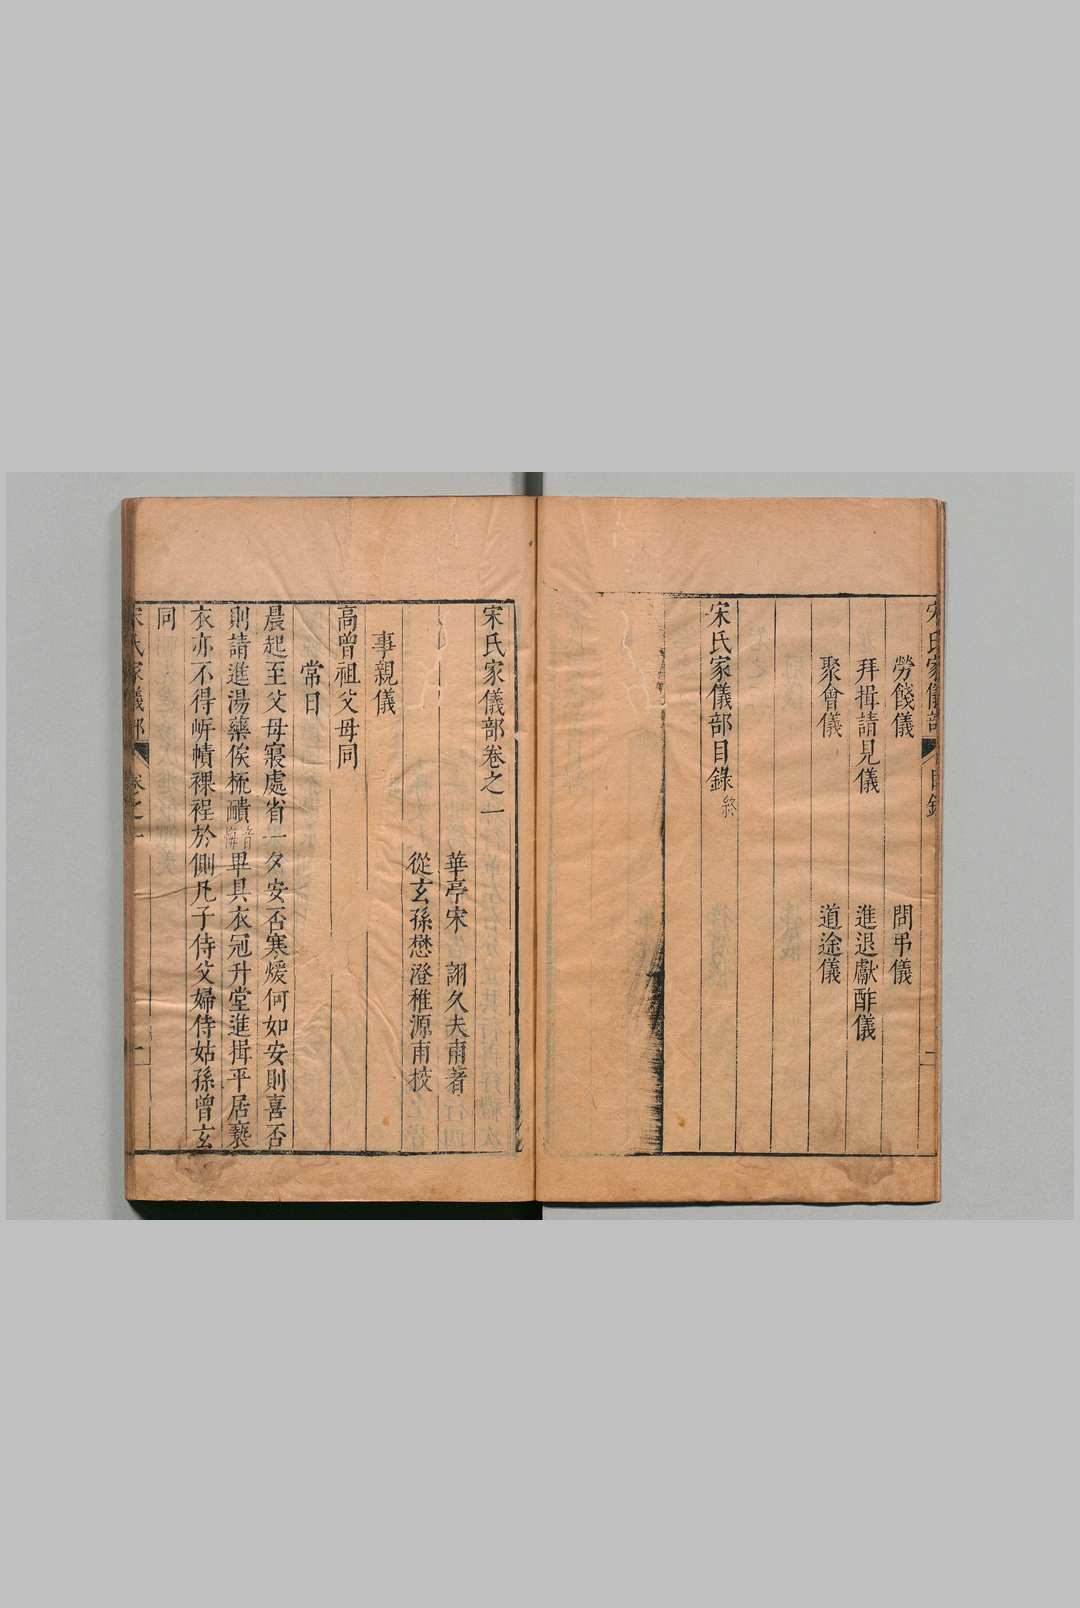 宋氏家儀部 目錄
勞餞儀 問弔儀
拜揖請見儀 進退獻酢儀
聚會儀 道途儀
宋氏家儀部目錄終
宋氏家儀部卷之一
華亭宋 詡久夫甫著
從玄孫懋澄稚源甫挍
事親儀
高曾祖父母同
常日
晨起至父母寢處省一夕安否寒煖何如安則喜否
則請進湯藥俟梳靧音悔畢具衣冠升堂進揖平居褻
衣亦不得岸幘裸裎於側凡子侍父婦侍姑孫曾玄
同
宋氏家儀部 卷之一 一